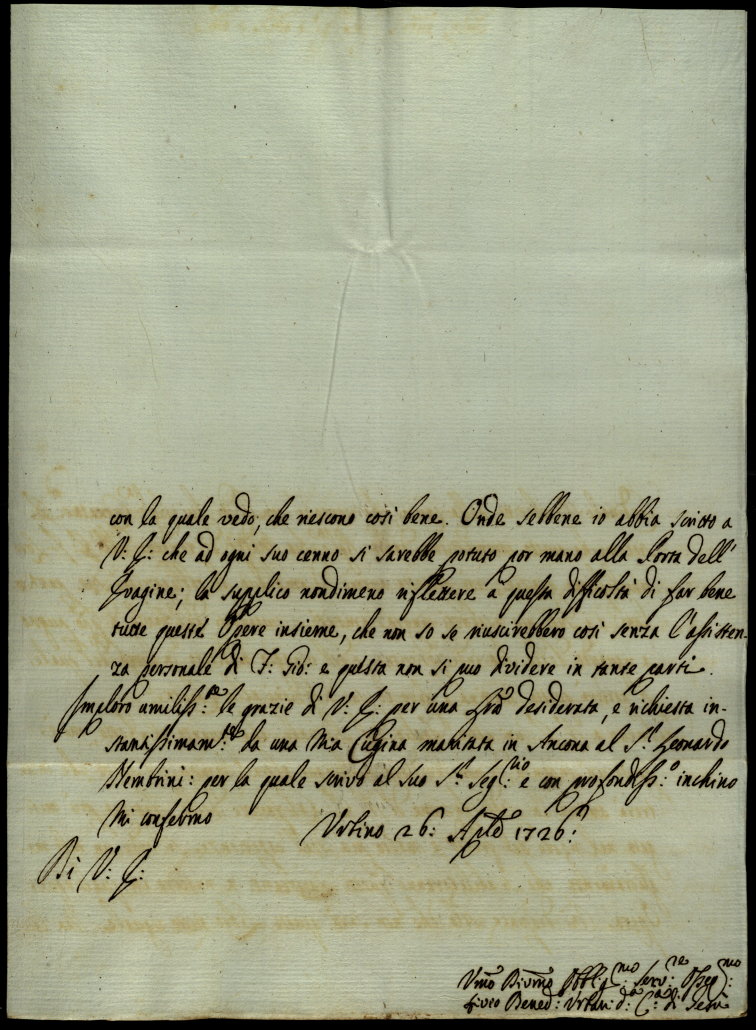 con la quale vedo, che riescono così bene. Onde sebbene io abbia scritto a
V: E: che ad ogni suo cenno si sarebbe potuto por mano alla Porta dell'
Imagine; la supplico nondimeno riflettere a questa difficoltà di far bene
tutte queste Opere insieme, che non so se riuscirebbero così senza l'assisten-
za personale di F: Gio: e questa non si può dividere in tante parti.
Imploro umiliss:te le grazie di V: E: per una desiderata, e richiesta in-
stantissimam:te da una mia Cugina maritata in Ancona al S:r Leonardo
Nembrini: per la quale scrivo al suo S:r Seg:rio e con profondiss:o inchino
mi confermo Urbino 26: Aple 1726:
Di V: E:
Umo Divmo Obblig:mo Serv:re Osseq:mo
Bened:o Urban: d:a C:a di Gesù